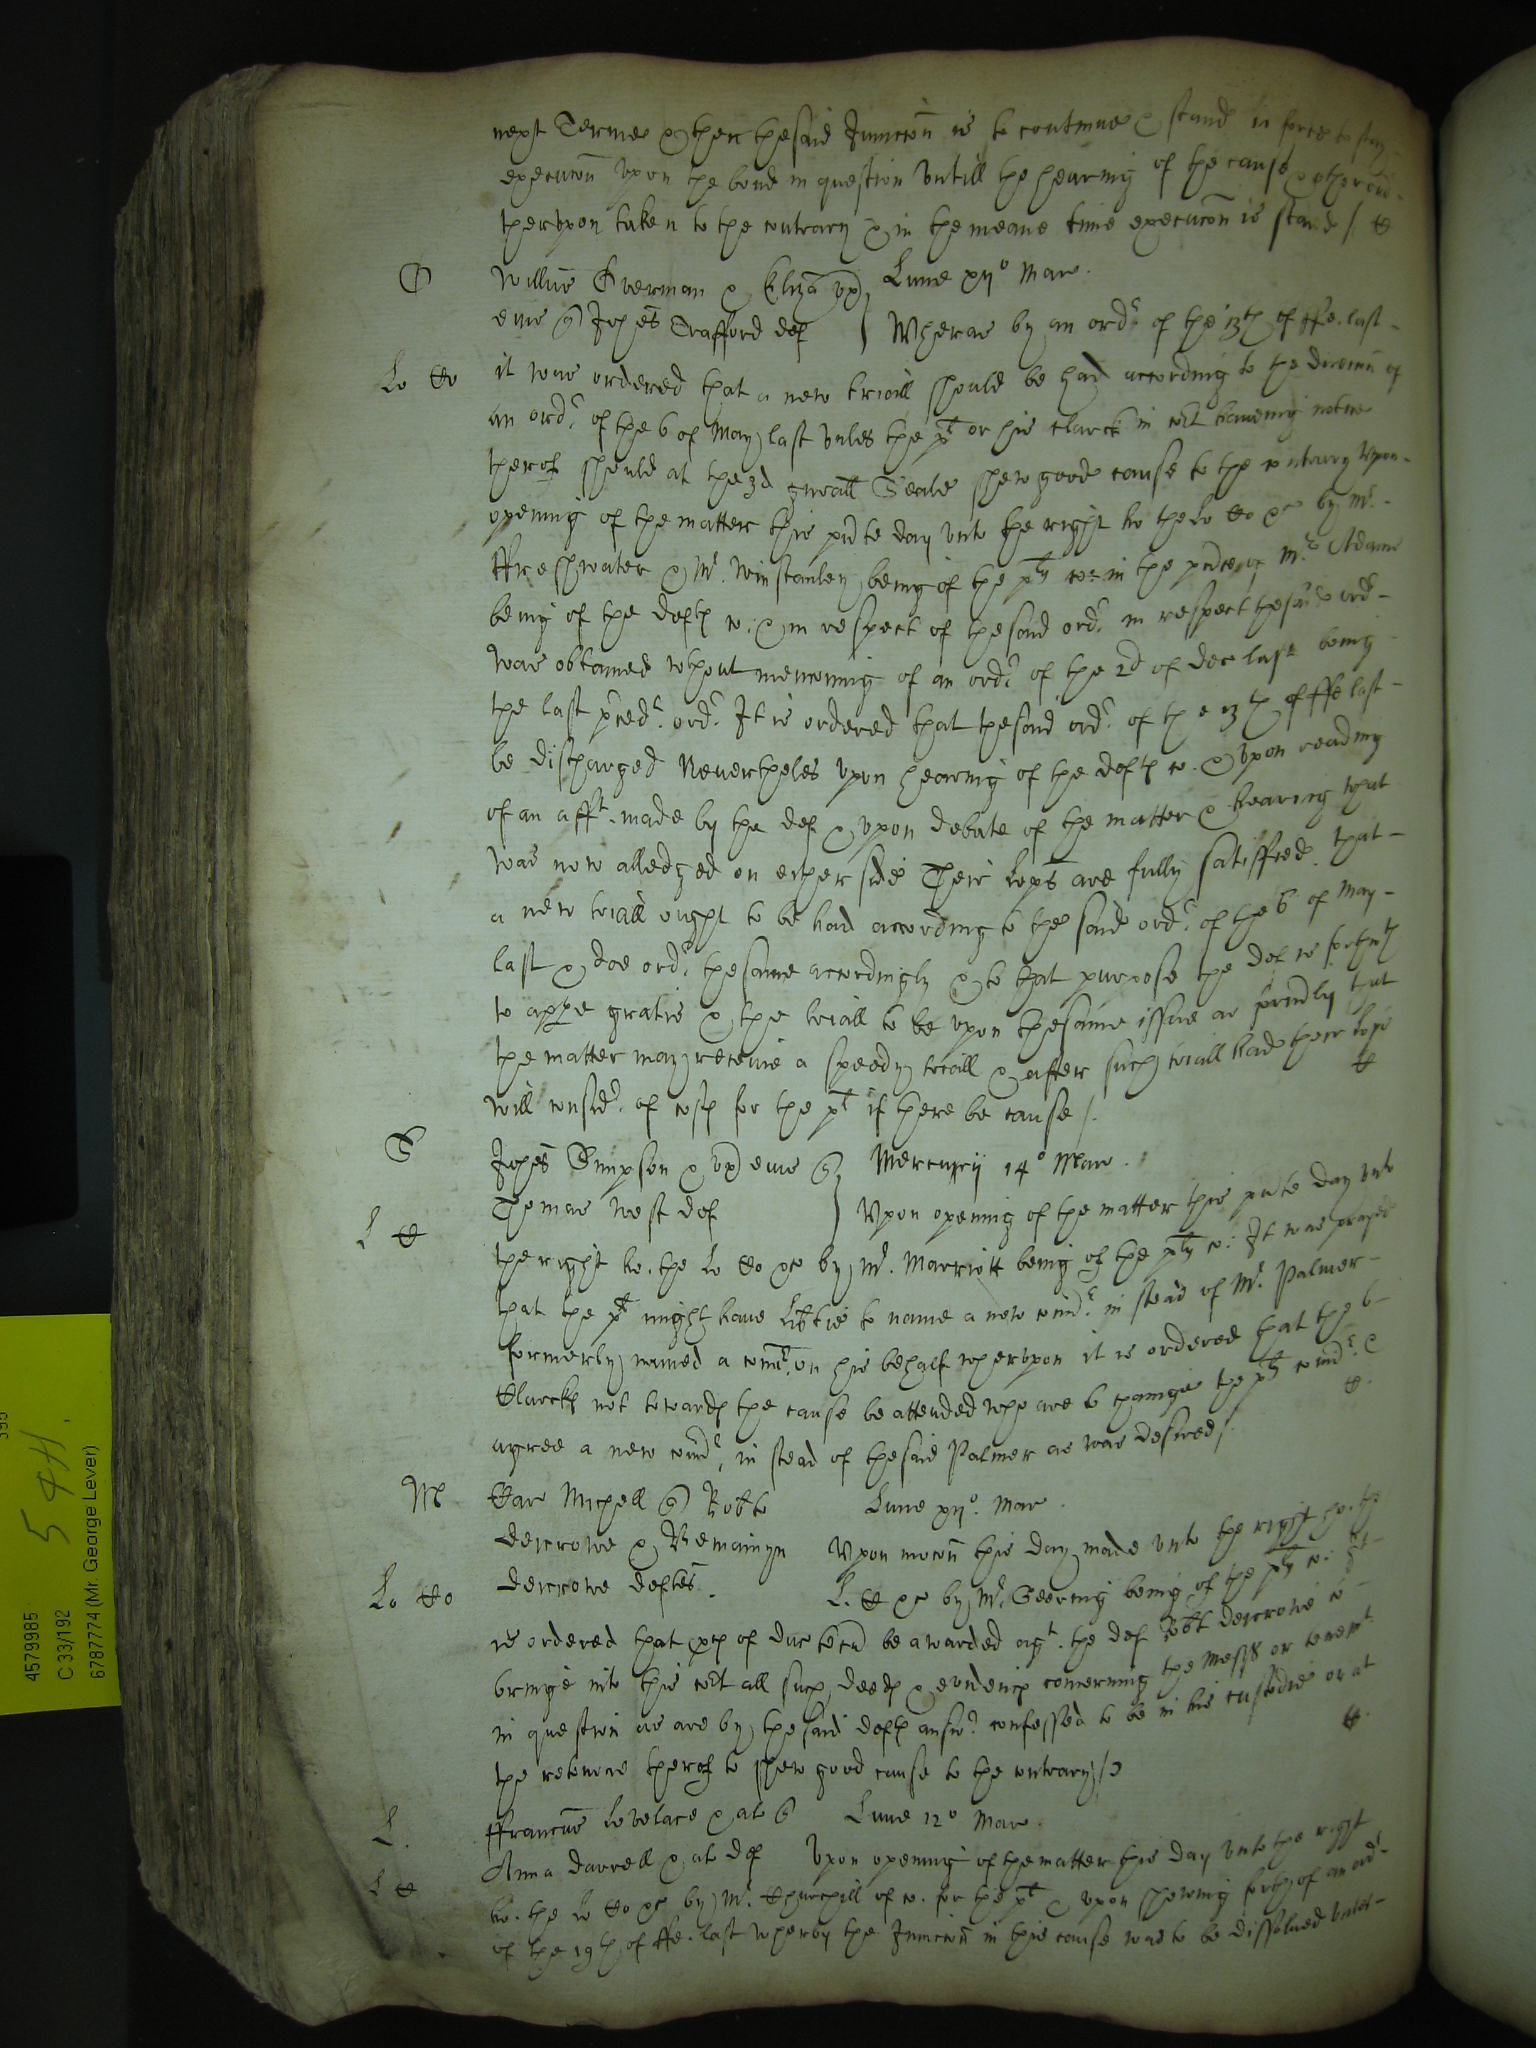 next Terme & then the said Iniuncc̃on is to continue & stand in force to stay
execuc̃on vpon the bond in question vntill the hearing of the cause & other ord
thervpon taken to the contrary & in the meane time execuc̃on is staied /.
O Willm̃s Overman & Eliza vx Lune xijo Mar.
eius Johes Trafford def Wheras by an ordr of the 13th of ffe. last
Lo Co it was ordered that a new triall should be had according to the direcc̃on of
an ordr of the 6 of May last vnles the plt or his clarck in cot haueing notice
therof should at the 3d gnrall Seale shew good cause to the contrary Vpon
opening of the matter this pñte day vnto the right ho the Lo Co &c by Mr.
ffreshwater & Mr. Winstanley being of the plts co: in the pñce of Mr Adams
being of the defts co: & in respect of the said ordr in respect the said ordr
was obtained wthout menc̃oning of an ordr of the 2d of dec last being
the last preced. ordr. It is ordered that the said ordr of the 13th of ffe last
be discharged Neuertheles vpon hearing of the defts co. & vpon reading
of an afft. made by the def & vpon debate of the matter & hearing what
was now alledged on either side Their lops are fully satisfied that
a new triall ought to be had according to the said ordr of the 6 of May
last & doe ordr the same accordingly & to that purpose the def is forthwth
to appe gratis & the triall to be vpon the same issue as formerly that
the matter may receiue a speedy triall & after such triall had their lops
will considr. of costs for the plt if there be cause /.
S Johes Simpson & vx eius Mercurij 14o Mar.
Thomas West def Vpon opening of the matter this pñte day vnto
L C the right ho. the Lo Co &c by Mr. Marriott being of the plts co: It was prayed
that the plt might haue libtie to name a new comr. in stead of Mr. Palmer
formerly named a comr. on his behalf whervpon it is ordered that the 6
Clarcks not towards the cause be attended who are to chainge the plts comr. &
agree a new comr. in stead of the said Palmer as was desired /.
M Car Michell Robto Lune xijo. Mar.
Derrowe & Beniamyn Vpon moc̃on this day made vnto the right ho. the
Lo Co Derrowe deftes. L. C &c by Mr. Seering being of the plts co: It
is ordered that of duc tecu be awarded agt. the def Robt Derrowe to
bringe into this cot all such deeds & evidence concerning the mess or tenemt
in question as are by the said defts answr confessed to be in his custodie or at
the retorne therof to shew good cause to the contrary /.
L. ffrancus Lovelace & als Lune 12o Mar.
Anna Darrell & als def Vpon opening of the matter this day vnto the right
L C ho. the Lo Co &c by Mr. Churchill of co. for the plt & vpon shewing forth of an ordr
of the 19th of ffe. last wherby the Iniuncc̃on in this cause was to be dissolued vnles
4579985
C 33/192
6787774 (Mr. George Lever)